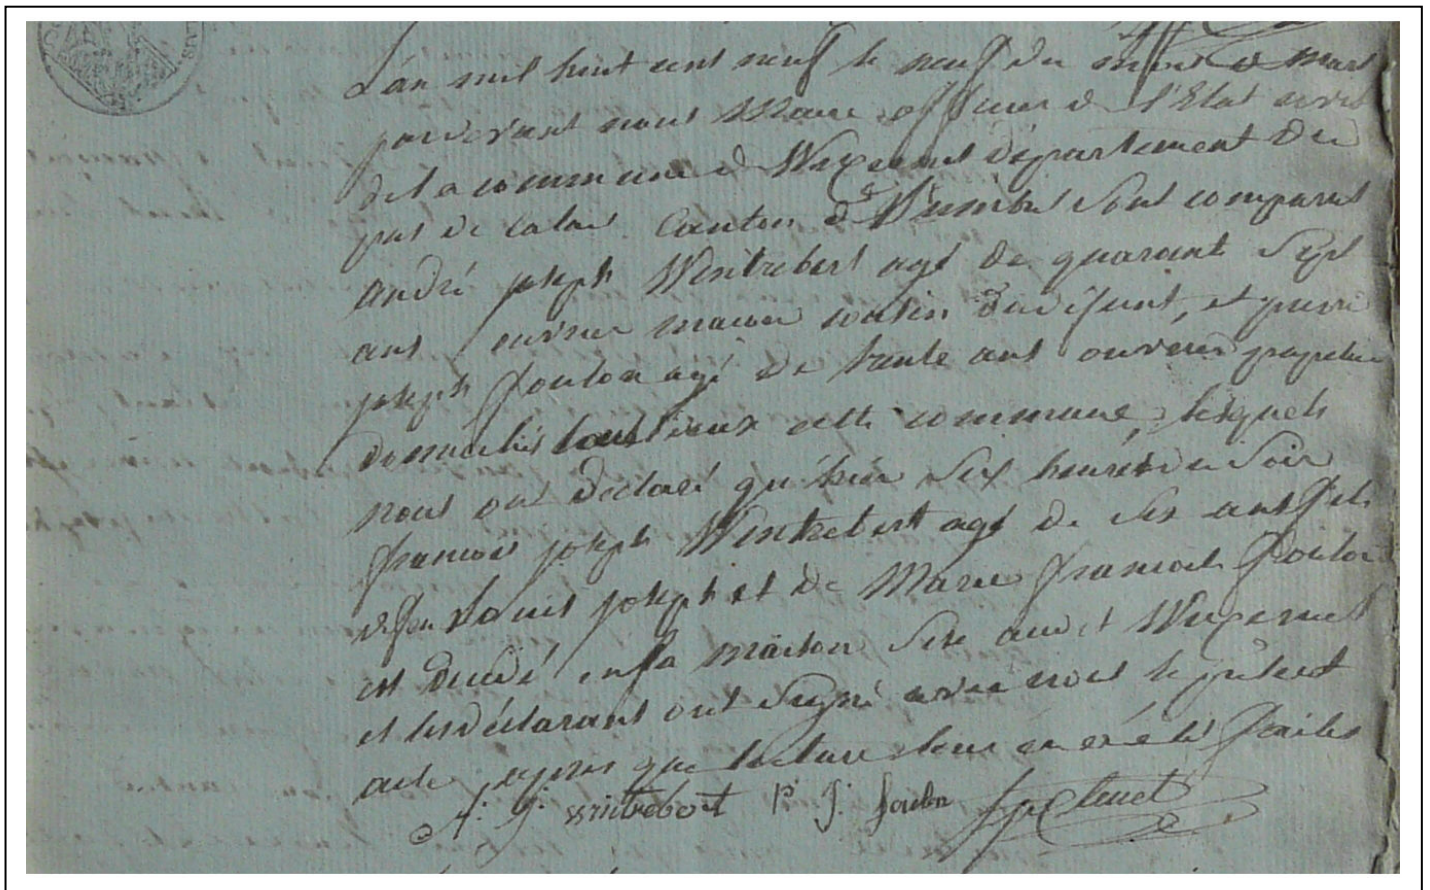 L'an mil huit cent neuf le neuf du mois de mars
pardevant nous Maire officier de l'Etat civil
de la commune de Wizernes département du
pas de calais Canton de Lumbres sont comparus
André joseph Wintrebert agé de quarante sept
ans ouvrier macon cousin du défunt, et pierre
joseph foulon agé de trente ans ouvrier papetier
domiciliés tous deux cette commune, lesquels
nous ont déclaré qu'hier six heures du soir
francois joseph Wintrebert agé de six ans fils
de feu Louis joseph et de Marie francoise foulon
est décédé en sa maison sise audit Wizernes
et les déclarant ont signé avec nous le présent
acte apres que lecture leur en a été faites
A: J: wintrebert Pr J: foulon